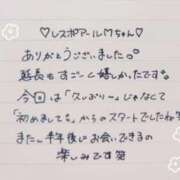 ♡レスポアールMちゃん♡
ありがとうございました。
延長もすごーく嬉しかったです。
今回は「久しぶりー」じゃなくて
「初めまして」からのスタートでしたね笑
また、半年後にお会いできるの
楽しみです笑